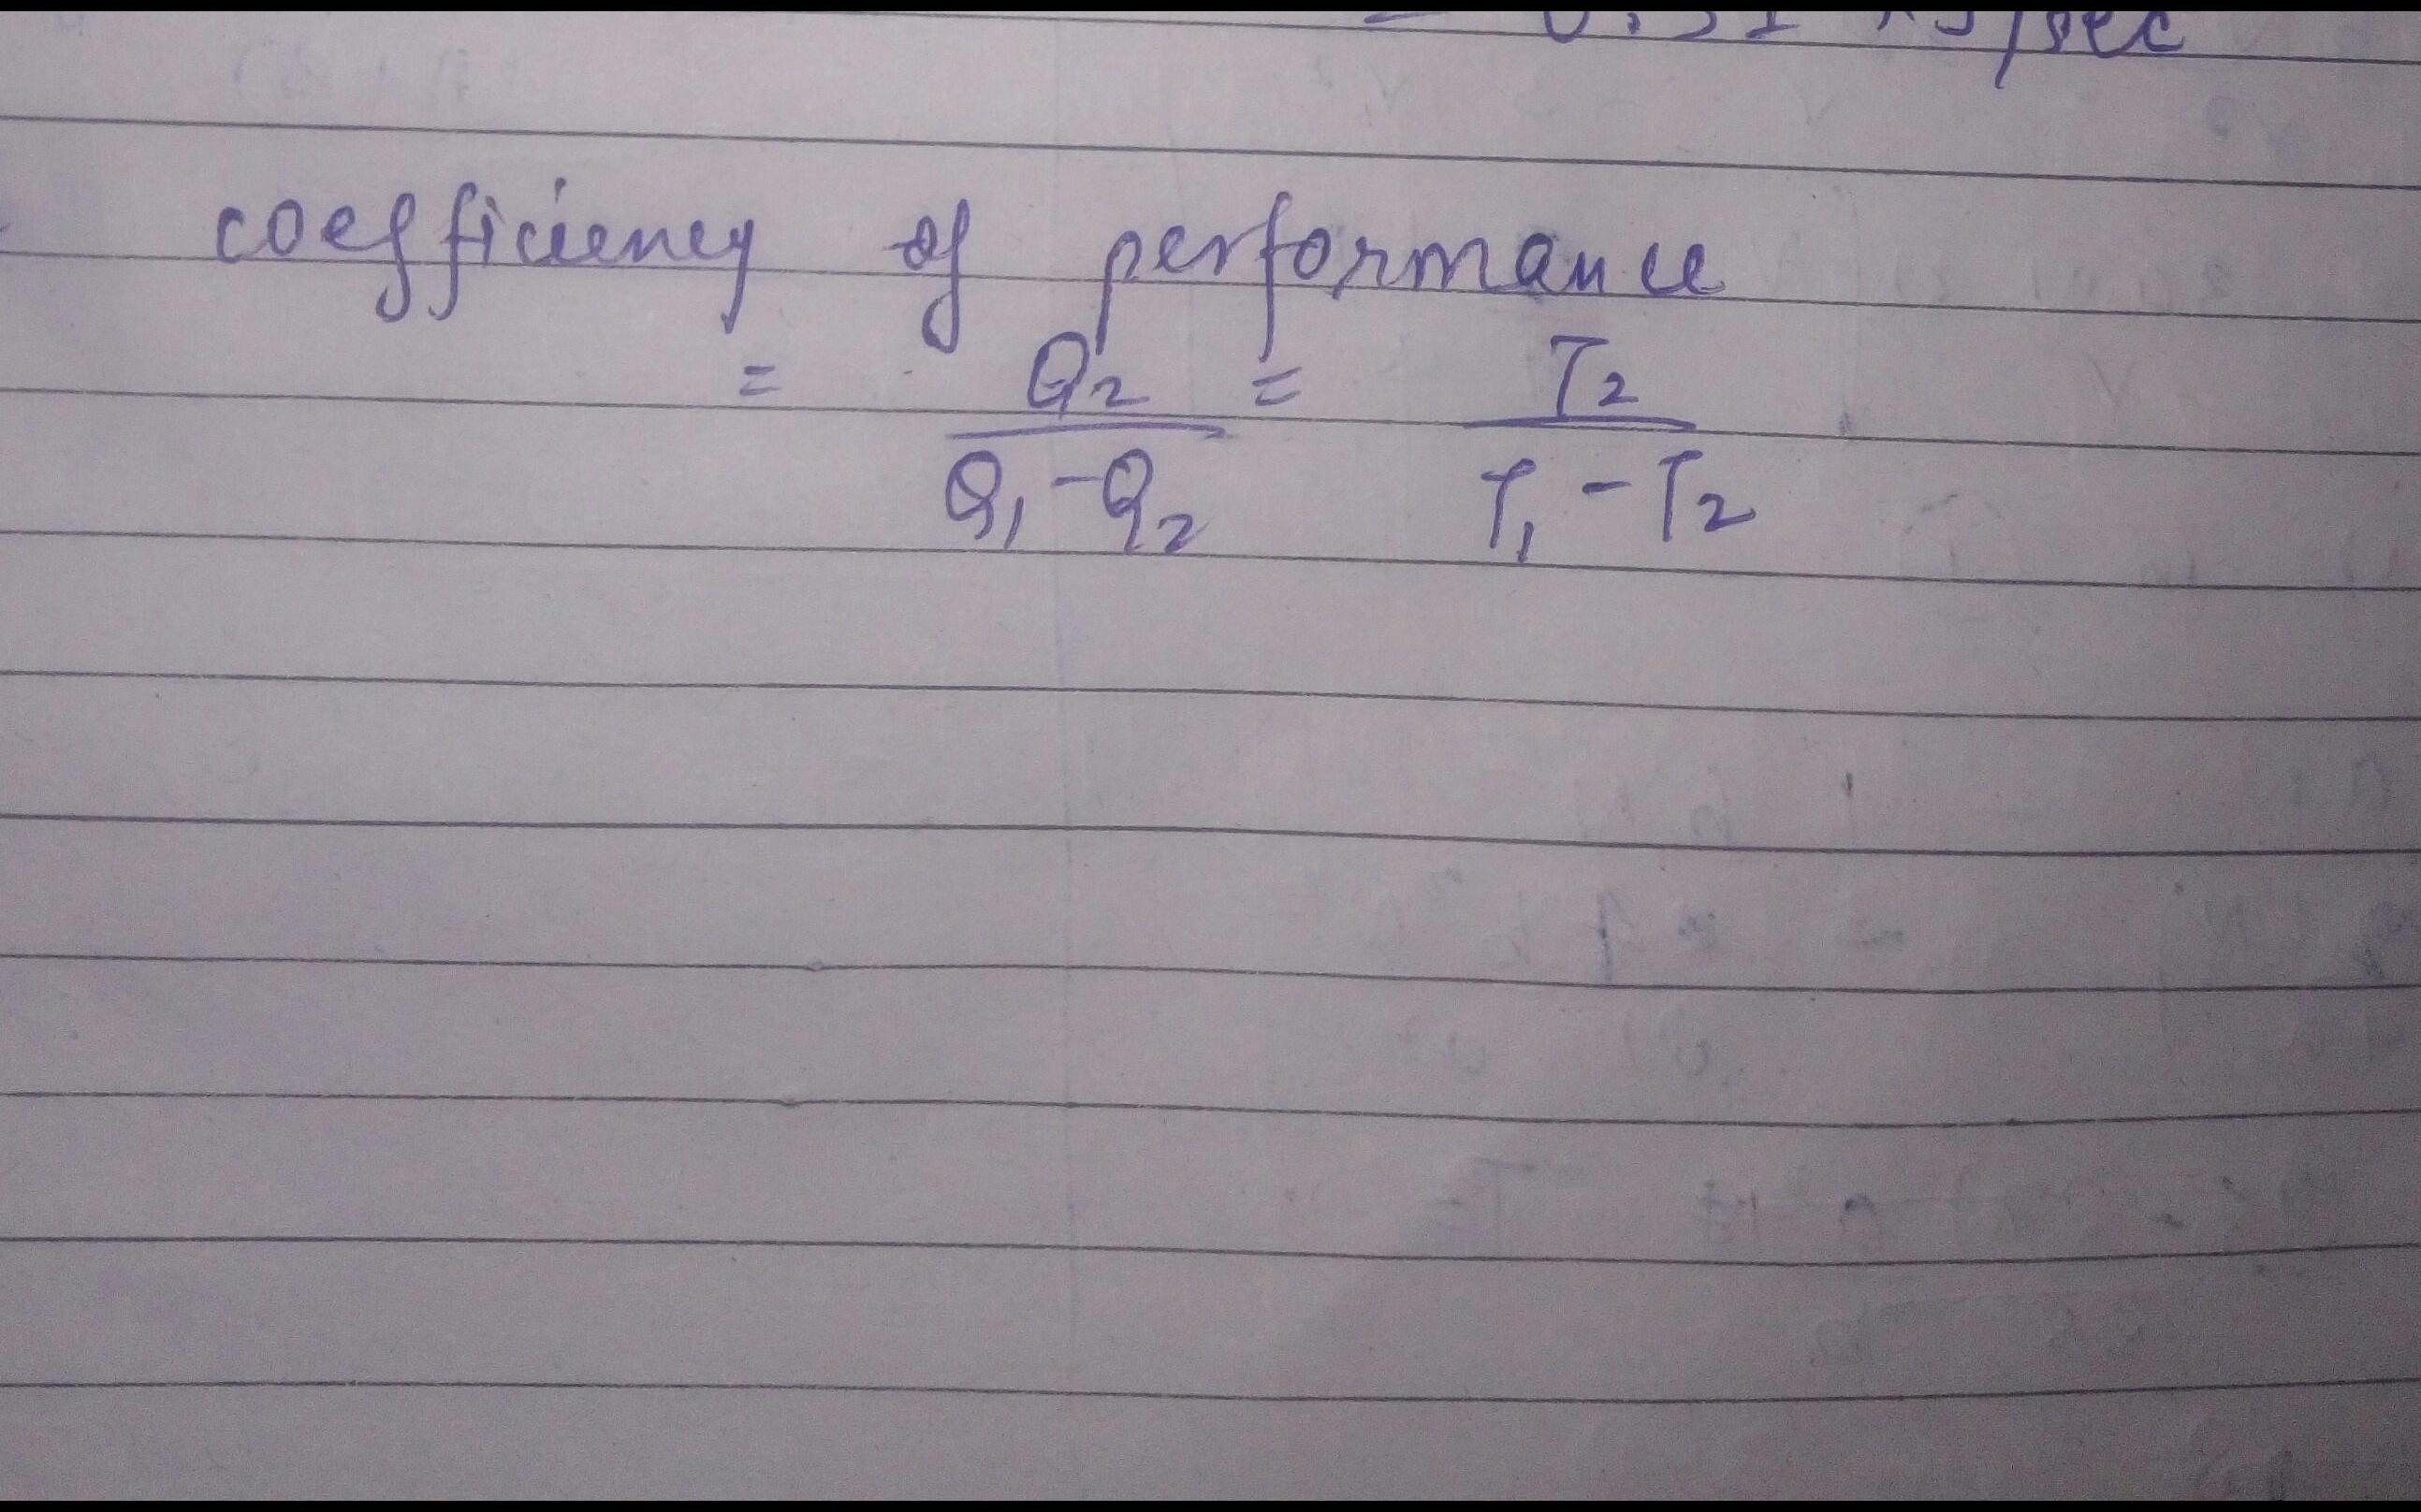 = 0.31 KJ/sec
coefficiency of performance
= Q₂ = T₂
Q₁-Q₂ T₁-T₂